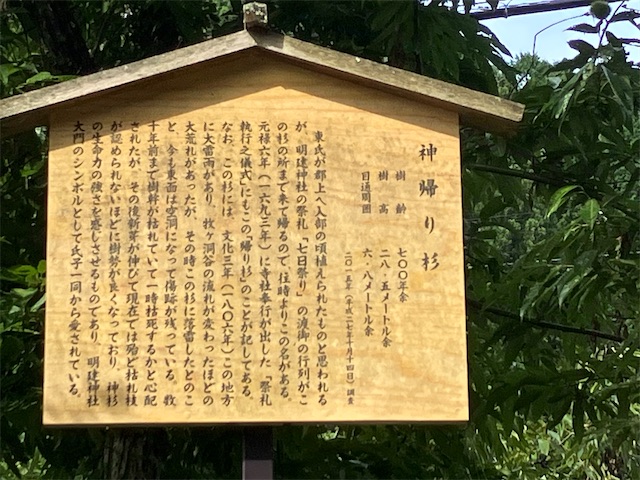 神帰り杉
樹齢 七〇〇年余
樹高 二八・五メートル余
目通周囲 六・八メートル余
二〇一五年(平成二七年十月十四日)調査
東氏が郡上へ入部の頃植えられたものと思われる
が、明建神社の祭礼「七日祭り」の渡御の行列がこ
の杉の所まで来て帰るので、往時よりこの名がある。
元禄六年(一六九三年)に寺社奉行が出した「祭礼
執行之儀式」にもこの「帰り杉」のことが記してある。
なお、この杉には、文化三年(一八〇六年)この地方
に大雷雨があり、牧ケ洞谷の流れが変わったほどの
大荒れがあったが、その時この杉に落雷したとのこ
と、今も東面は空洞になって傷跡が残っている。数
十年前まで樹幹が枯れていて一時枯死するかと心配
されたが、その後新芽が伸びて現在では殆ど枯れ枝
が認められないほどに樹勢が良くなっており、神杉
の生命力の強さを感じさせるものであり、明建神社
大門のシンボルとして氏子一同から愛されている。